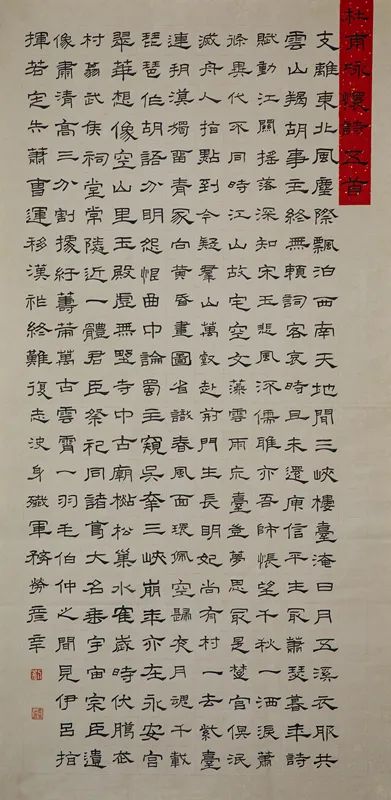 杜甫詠懷詩五首
支離東北風塵際飄泊西南天地間三峽樓臺淹日月五溪衣服共
雲山羯胡事主終無賴詞客哀時且未還庾信平生最蕭瑟暮年詩
賦動江關搖落深知宋玉悲風流儒雅亦吾師悵望千秋一洒淚蕭
條異代不同時江山故宅空文藻雲雨荒臺豈夢思最是楚宮俱泯
滅舟人指點到今疑羣山萬壑赴荊門生長明妃尚有村一去紫臺
連朔漠獨留青冢向黃昏畫圖省識春風面環佩空歸夜月魂千載
琵琶作胡語分明怨恨曲中論蜀主窺吳幸三峽崩年亦在永安宮
翠華想像空山里玉殿虛無野寺中古廟杉松巢水鶴歲時伏臘走
村翁武侯祠堂常隣近一體君臣祭祀同諸葛大名垂宇宙宗臣遺
像肅清高三分割據紆籌策萬古雲霄一羽毛伯仲之間見伊呂指
揮若定失蕭曹運移漢祚終難復志決身殲軍務勞